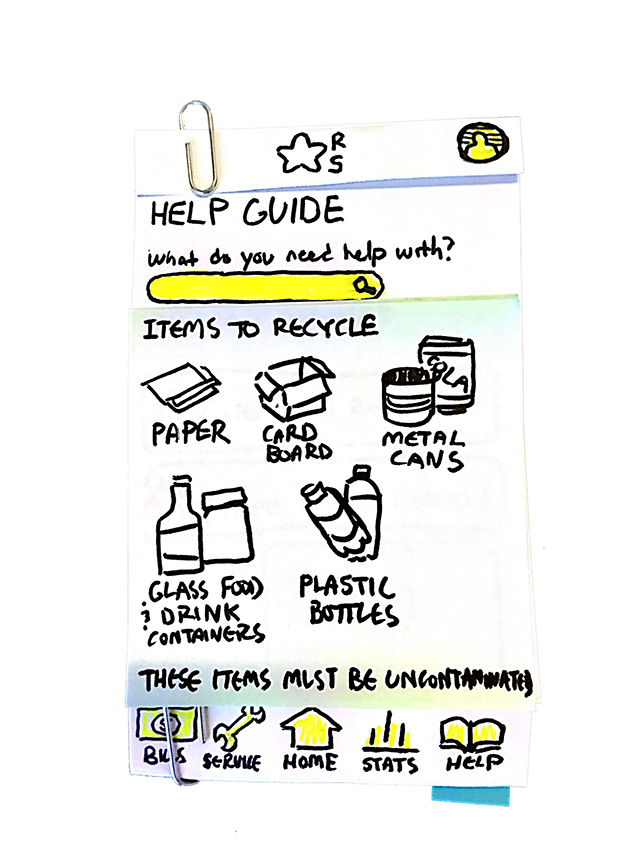 R
S
HELP GUIDE
what do you need help with?
ITEMS TO RECYCLE
PAPER
CARD
BOARD
METAL
CANS
COLA
GLASS FOOD
& DRINK
CONTAINERS
PLASTIC
BOTTLES
THESE ITEMS MUST BE UNCONTAMINATED
BILLS
SERVICE
HOME
STATS
HELP